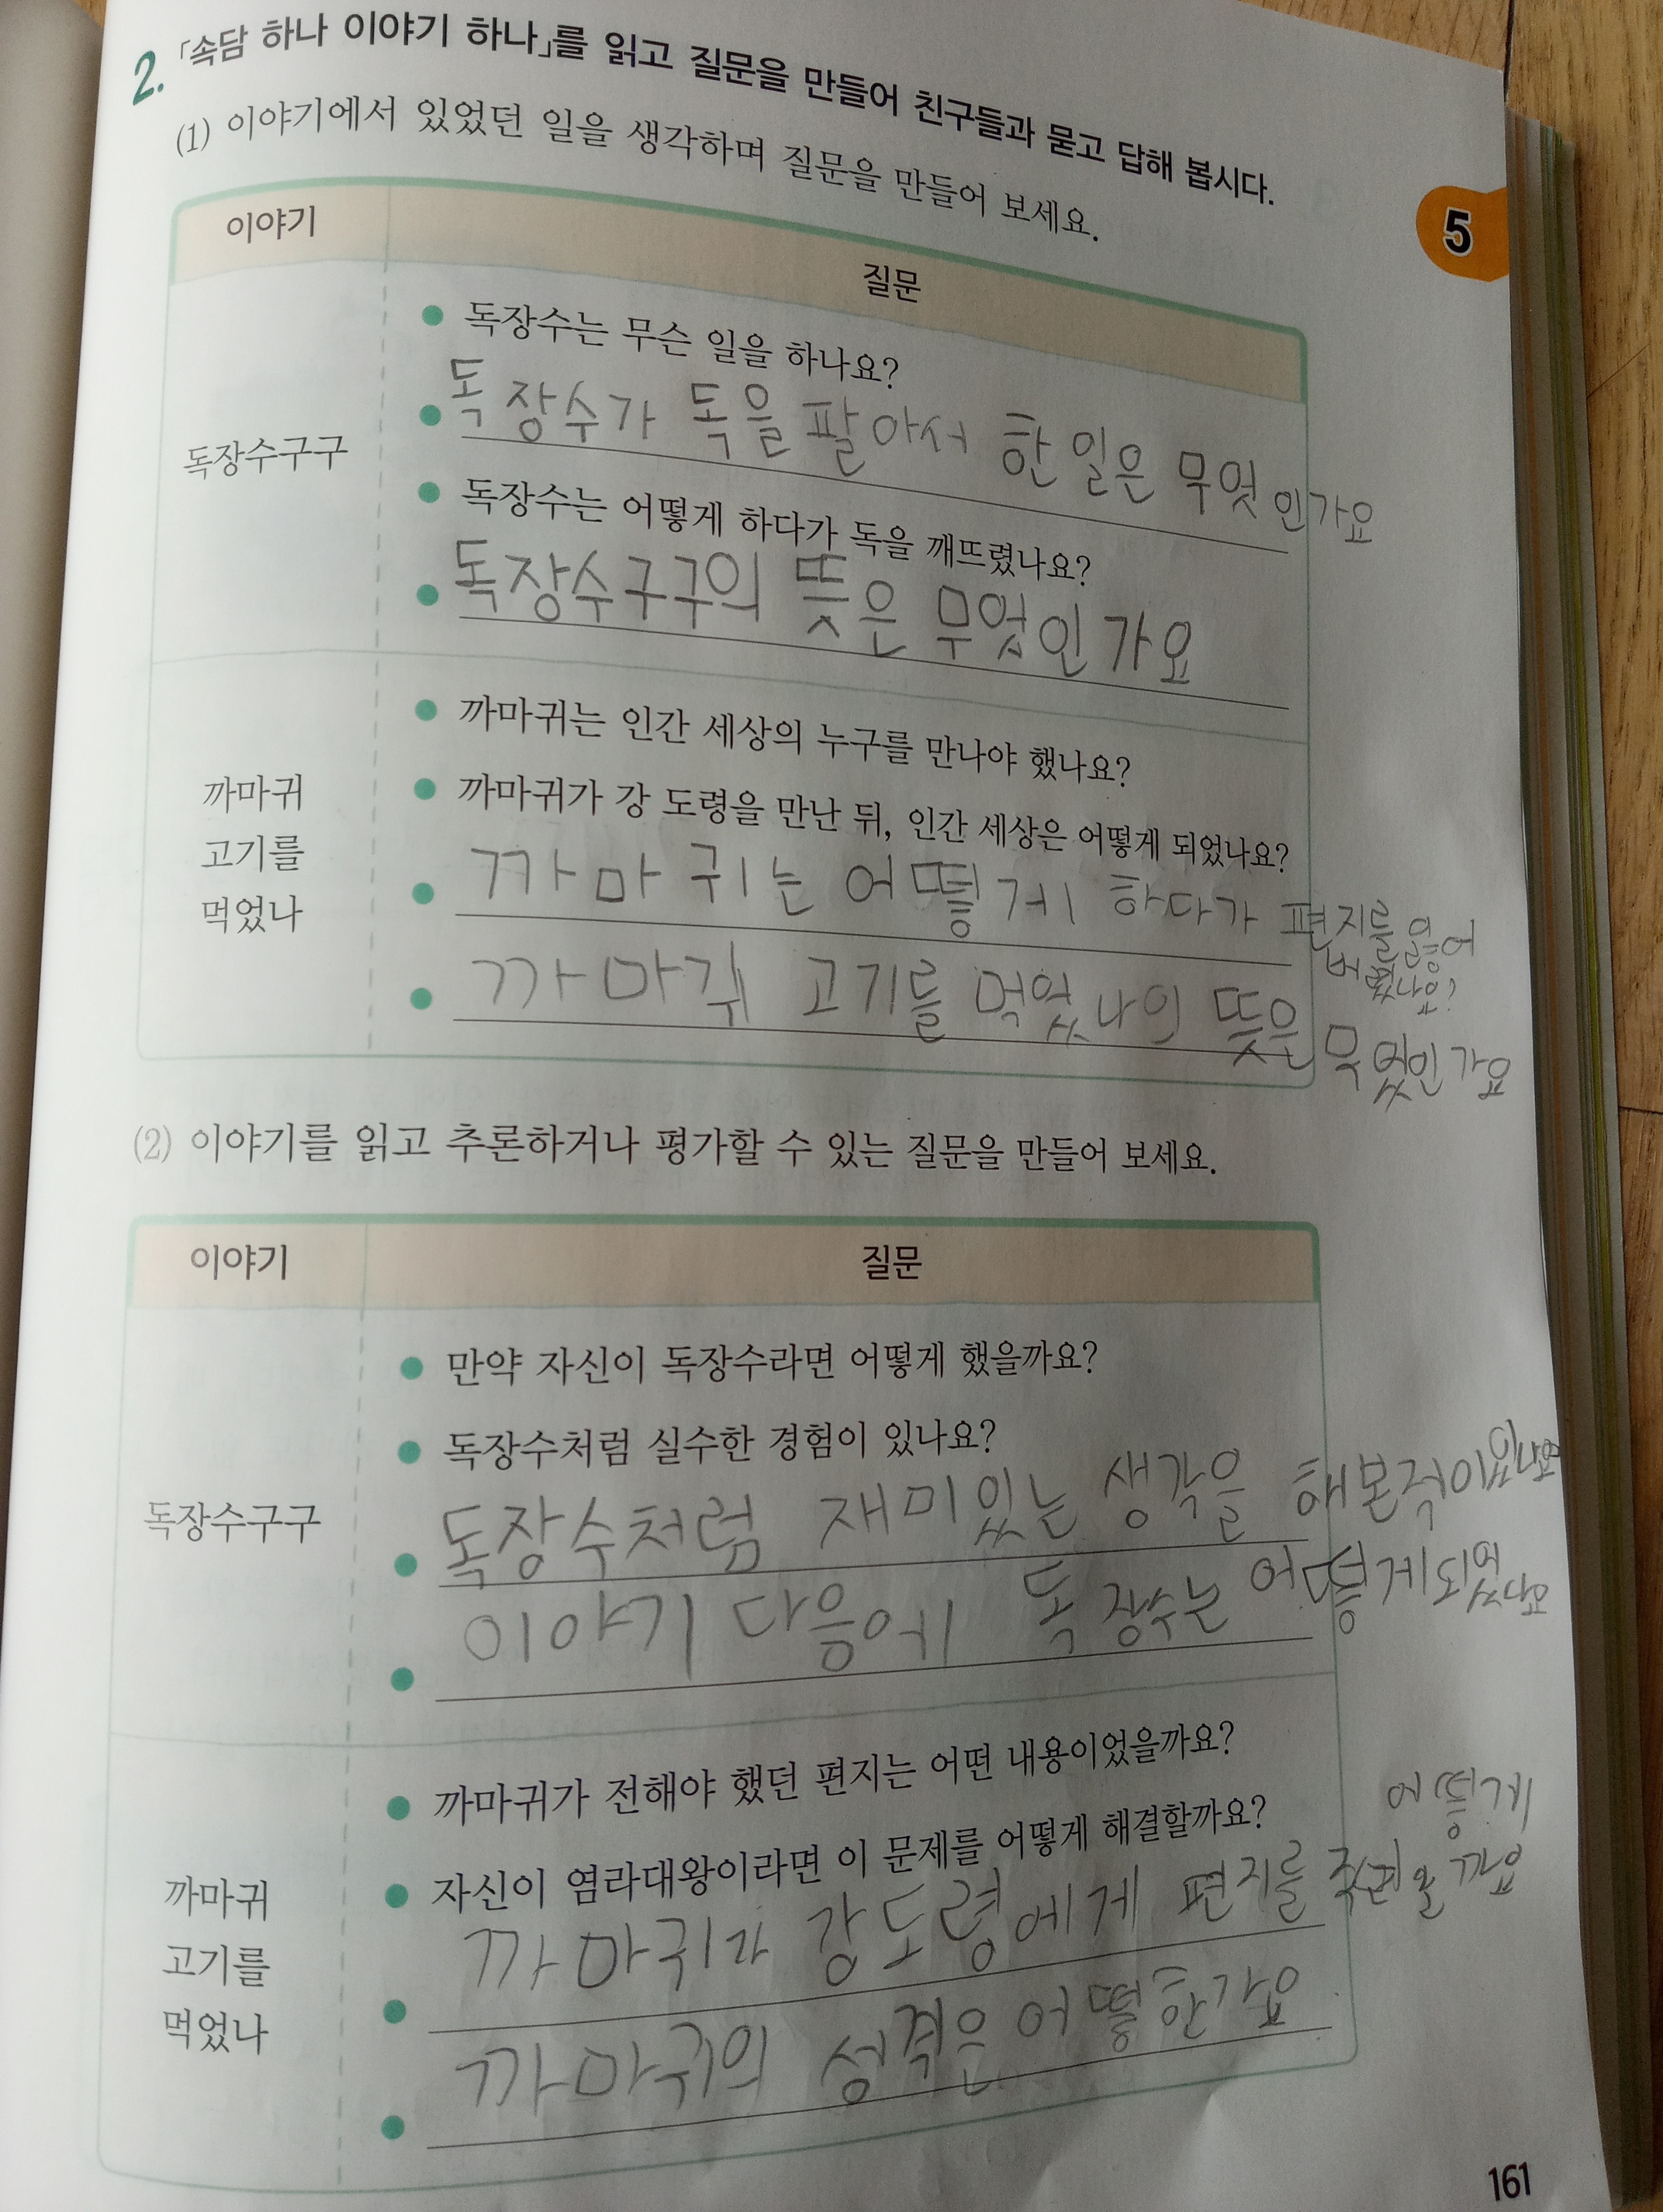 2. 「속담 하나 이야기 하나」를 읽고 질문을 만들어 친구들과 묻고 답해 봅시다.
(1) 이야기에서 있었던 일을 생각하며 질문을 만들어 보세요.
5
이야기
질문
독장수구구
독장수는 무슨 일을 하나요?
독장수가 독을 팔아서 한 일은 무엇인가요
독장수는 어떻게 하다가 독을 깨뜨렸나요?
독장수구구의 뜻은 무었인가요
까마귀
고기를
먹었나
까마귀는 인간 세상의 누구를 만나야 했나요?
까마귀가 강 도령을 만난 뒤, 인간 세상은 어떻게 되었나요?
까마귀는 어떻게 하다가 편지를
까마귀 고기를 먹었나의 뜻은 무었인가요
(2) 이야기를 읽고 추론하거나 평가할 수 있는 질문을 만들어 보세요.
이야기
질문
독장수구구
만약 자신이 독장수라면 어떻게 했을까요?
독장수처럼 실수한 경험이 있나요?
독장수처럼 재미있는 생각을 해본적이있나요
이야기 다음에 독장수는 어떻게되었나요
까마귀
고기를
먹었나
까마귀가 전해야 했던 편지는 어떤 내용이었을까요?
자신이 염라대왕이라면 이 문제를 어떻게 해결할까요?
어떻게
까마귀가 강도령에게 편지를
까마귀의 성격은 어떻한가요
161